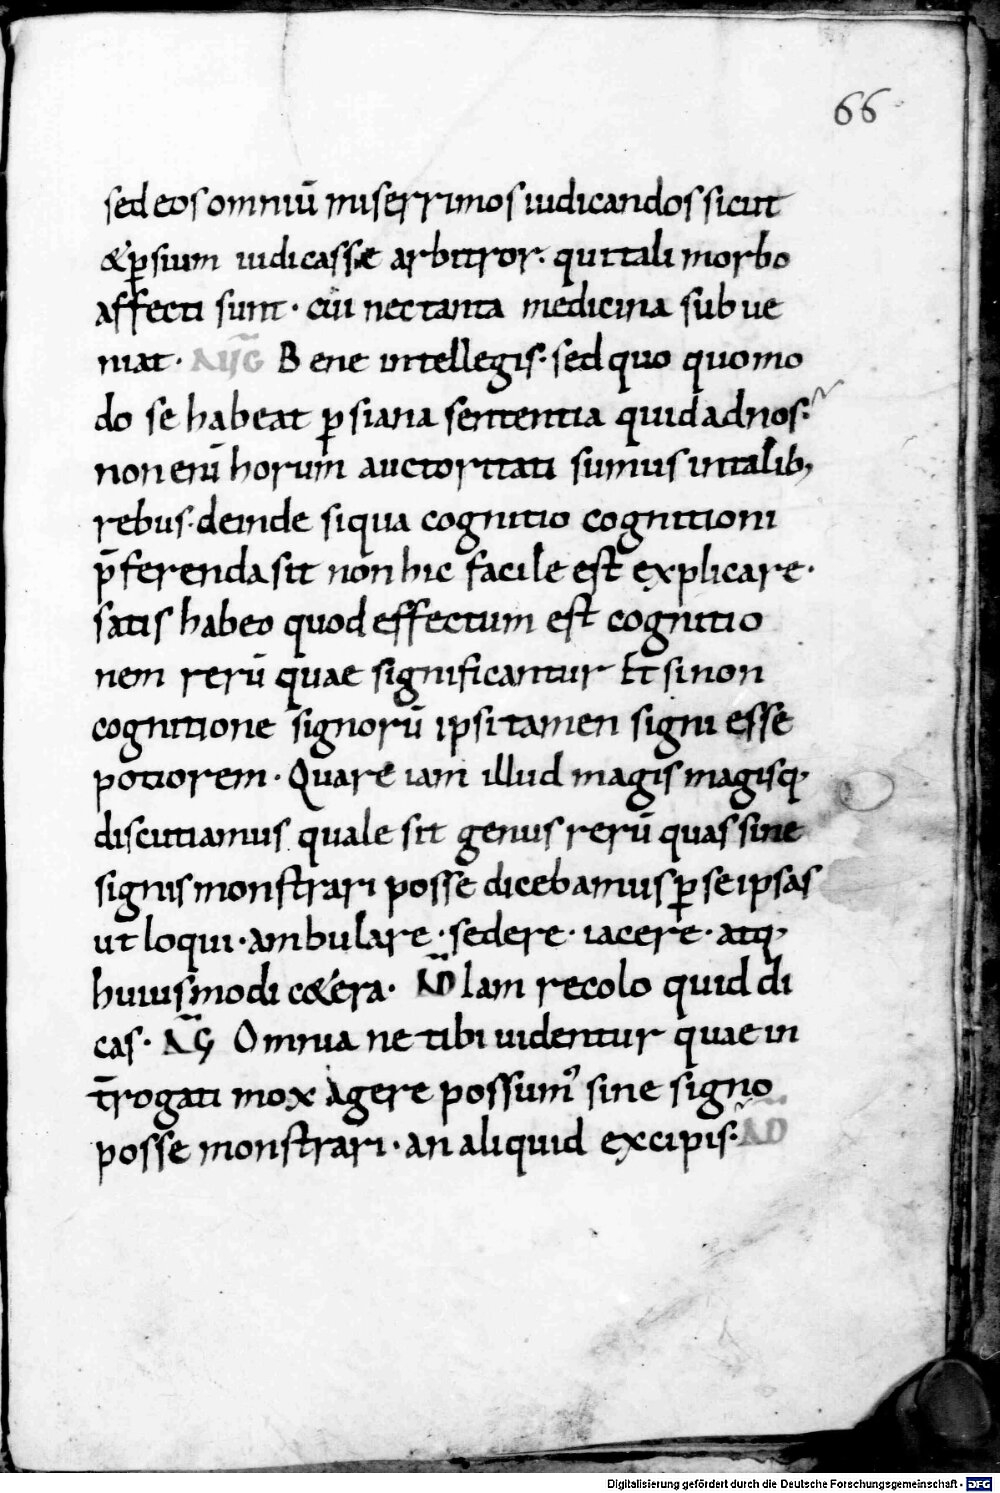 66
sed eos omniū miserrimos iudicandos sicut
& ꝑsium iudicasse arbitror. qui tali morbo
affecti sunt · cūi nec tanta medicina subue
niat · AUG̅ Bene intellegis · sed quo quomo
do se habeat ꝑsiana sententia quid ad nos ·
non enī horum auctoritati sumus in talib;
rebus · deinde si qua cognitio cognitioni
p̄ferenda sit non hic facile est explicare ·
satis habeo quod effectum est cognitio
nem rerū quae significantur Et si non
cognitione signorū ipsi tamen signi esse
potiorem · Quare iam illud magis magisq·
discutiamus quale sit genus rerū quas sine
signis monstrari posse dicebamus ꝑ se ipsas
ut loqui · ambulare · sedere · iacere · atq·
huiusmodi c&era · AD̅ Iam recolo quid di
cas · AG̅ Omnia ne tibi uidentur quae in
t̄rogati mox agere possum' sine signo
posse monstrari · an aliquid excipis · AD̅
Digitalisierung gefördert durch die Deutsche Forschungsgemeinschaft - DFG